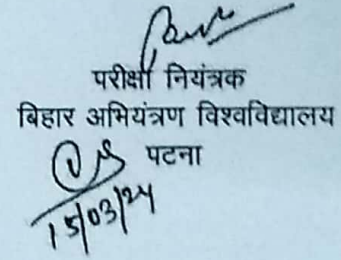 परीक्षा नियंत्रक
बिहार अभियंत्रण विश्वविद्यालय
पटना
15/03/24